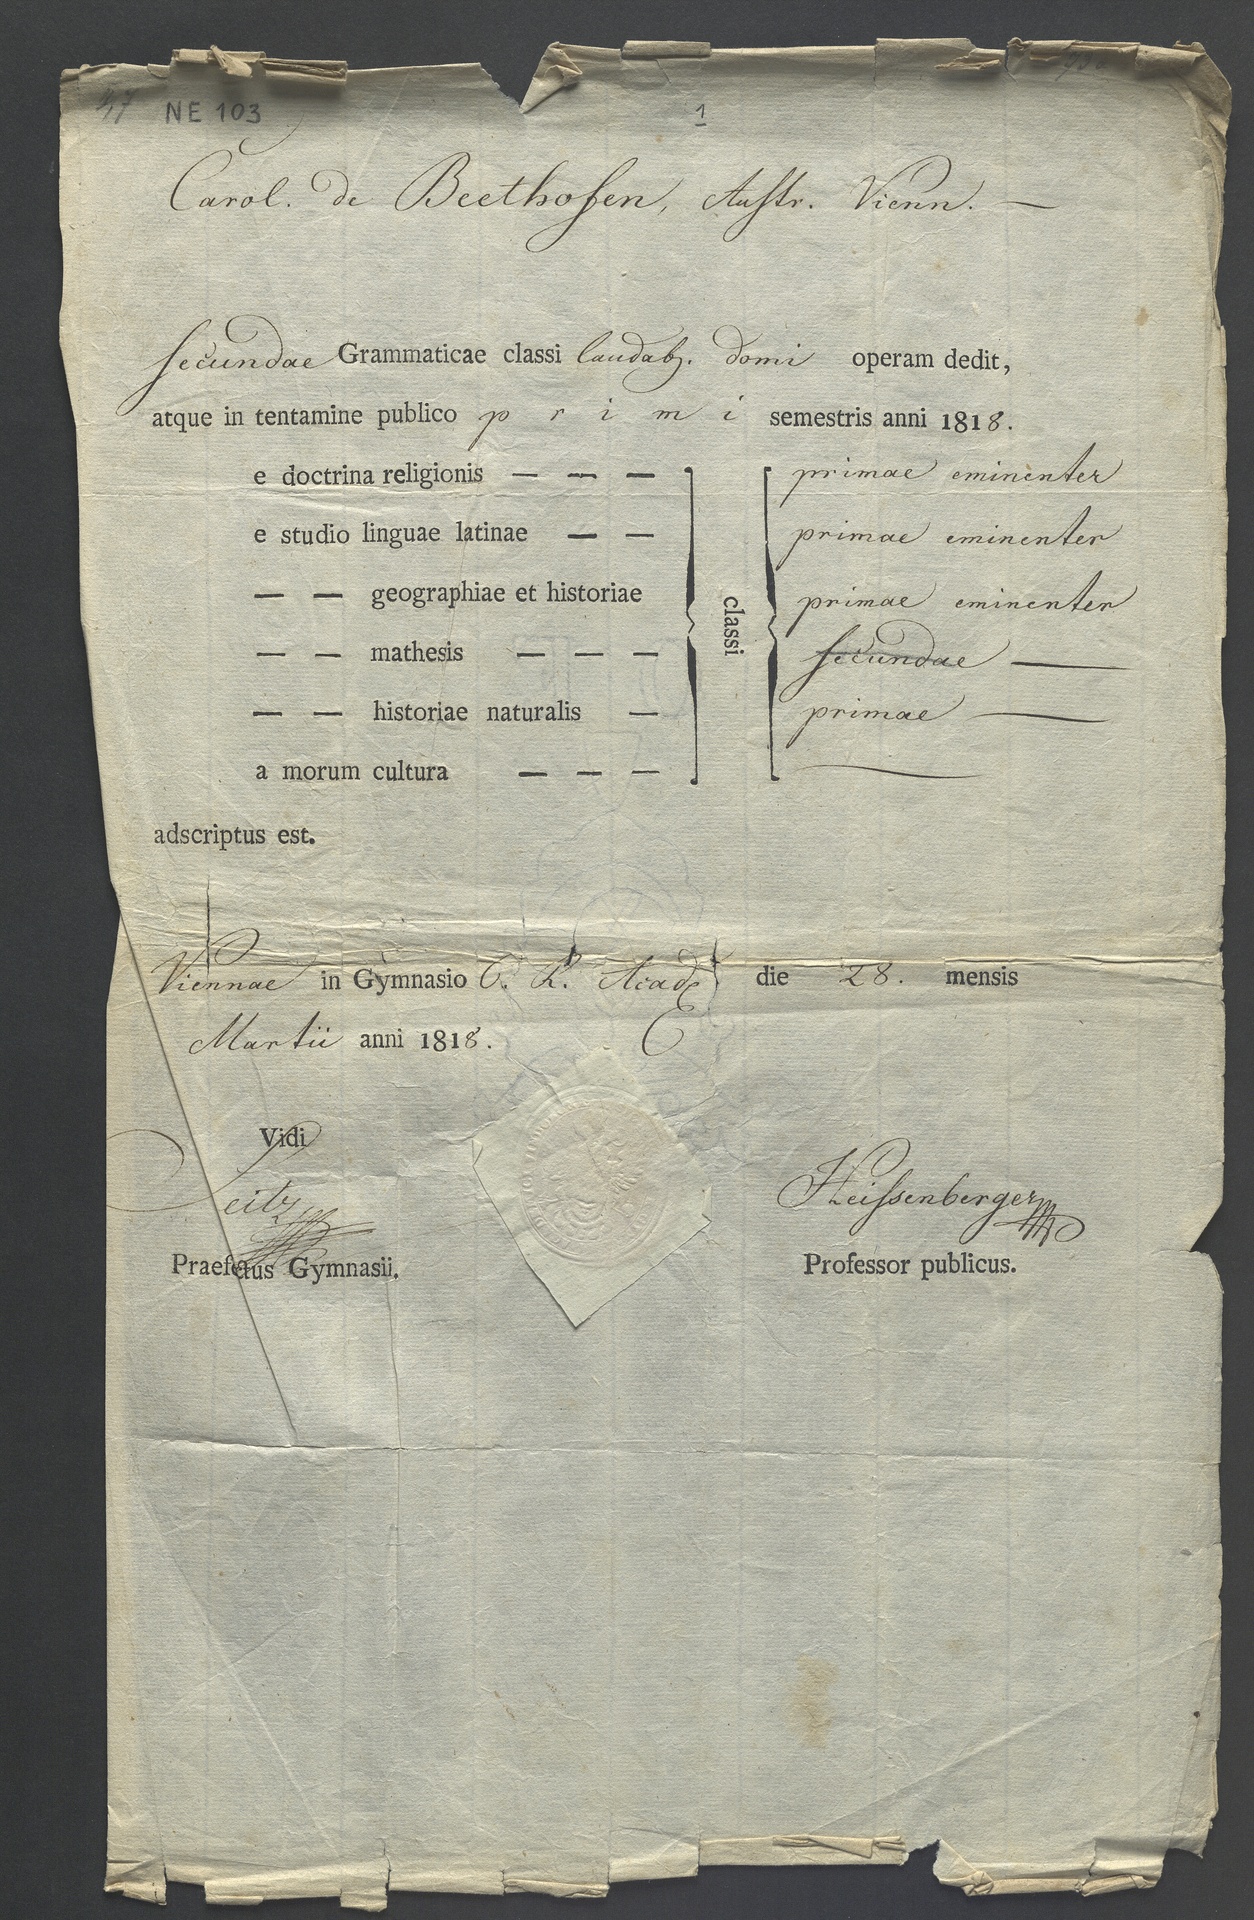 47 NE 103 1
Carol. de Beethofen, Austr. Vienn. —
secundae Grammaticae classi laudab. domi operam dedit,
atque in tentamine publico p r i m i semestris anni 1818.
e doctrina religionis — — — primae eminenter
e studio linguae latinae — — primae eminenter
— — geographiae et historiae primae eminenter
classi
— — mathesis — — — secundae —
— — historiae naturalis — primae —
a morum cultura — — — —
adscriptus est.
Viennae in Gymnasio C. R. Acad. die 28. mensis
Martii anni 1818.
Vidi
Heissenberger
Praefectus Gymnasii. Professor publicus.